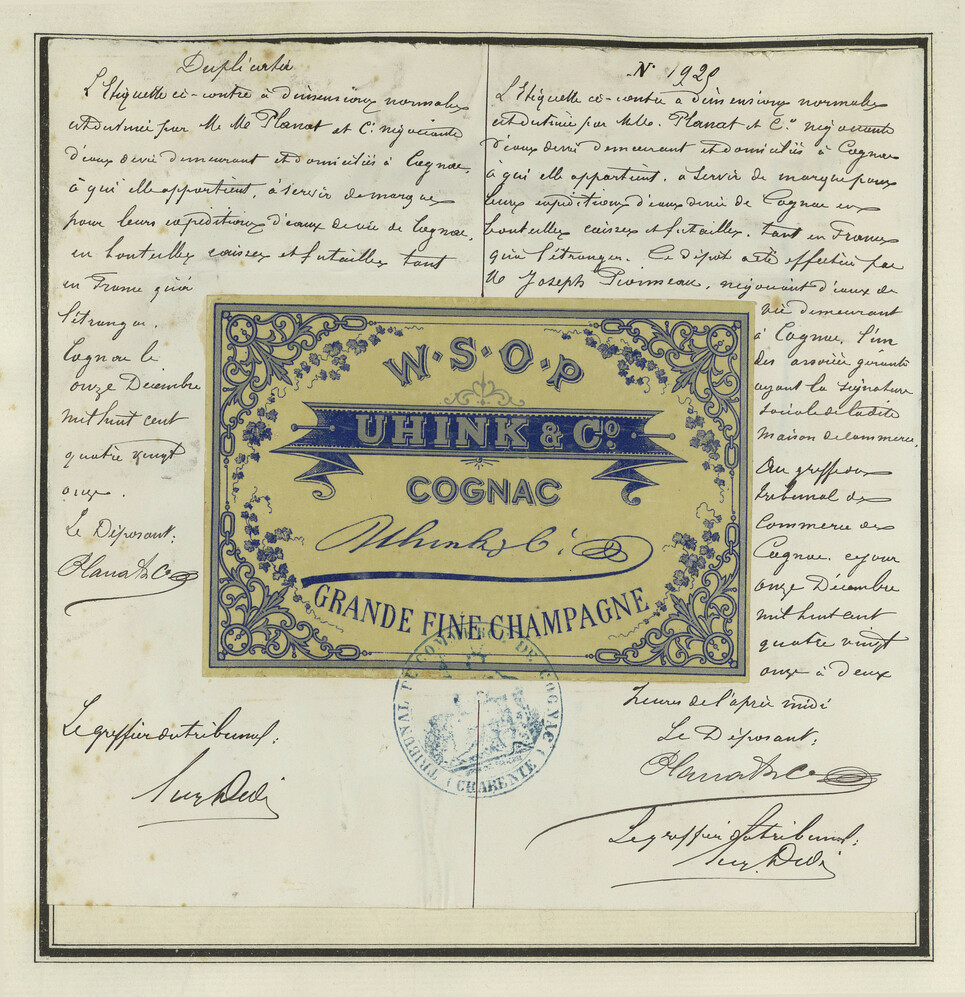 Duplicata
L'Etiquette ci-contre à dimensions normales
est destinée par M. M. Planat et Cie négociants
d'eaux de vie demeurant et domiciliés à Cognac,
à qui elle appartient, à servir de marque
pour leurs expéditions d'eaux de vie de Cognac,
en bouteilles caisses et futailles tant
en France qu'à
l'étranger.
Cognac le
onze Décembre
mil huit cent
quatre vingt
onze.
Le Déposant:
Planat & Co
Le greffier du tribunal:
N 1920
L'Etiquette ci-contre à dimensions normales
est destinée par M. M. Planat et Co négociants
d'eaux de vie demeurant et domiciliés à Cognac
à qui elle appartient, à servir de marque pour
leurs expéditions d'eaux de vie de Cognac en
bouteilles caisses et futailles, tant en France
qu'à l'étranger. Ce dépôt a été effectué par
M. Joseph, négociant d'eaux de
vie demeurant
à Cognac, l'un
des associés gérants
ayant la signature
sociale de ladite
maison de commerce.
Au greffe du
tribunal de
Commerce de
Cognac, ce jour
onze Décembre
mil huit cent
quatre vingt
onze à deux
heures de l'après midi
Le Déposant:
Planat & Co
Le greffier du tribunal:
W·S·O·P
UHINK & Co.
COGNAC
Uhink & Cie
GRANDE FINE CHAMPAGNE
TRIBUNAL DE COMMERCE DE COGNAC
(CHARENTE)